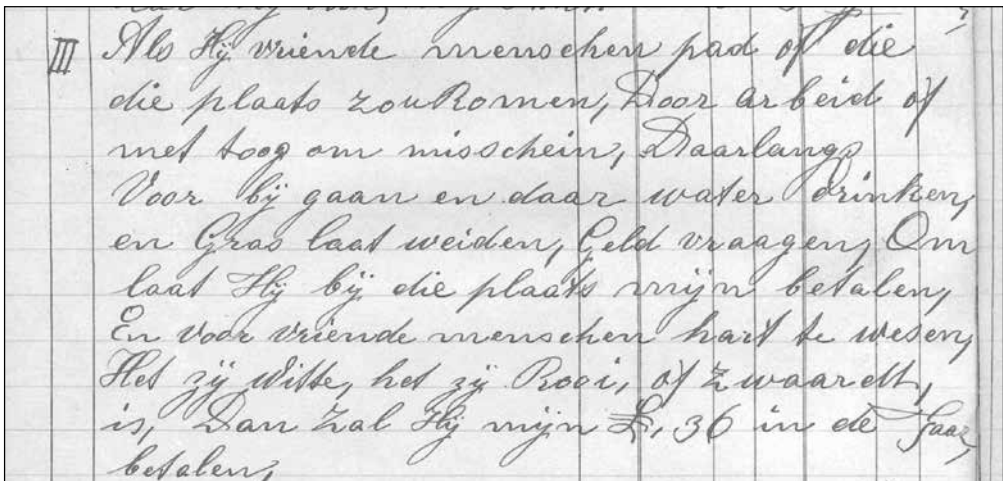 III Als Hÿ vriende menschen pad of die
die plaats zou Komen, Door arbeid of
met toog om misschein, Daarlangs
Voor bÿ gaan en daar water drinken,
en Gras laat weiden, Geld vraagen, Om
laat Hÿ bÿ die plaats mÿn betalen,
En voor vriende menschen hart te wesen,
Het zÿ Witte, het zÿ Rooi, of zwaardt,
is, Dan zal Hÿ mÿn £, 36 in de Jaar,
betalen,